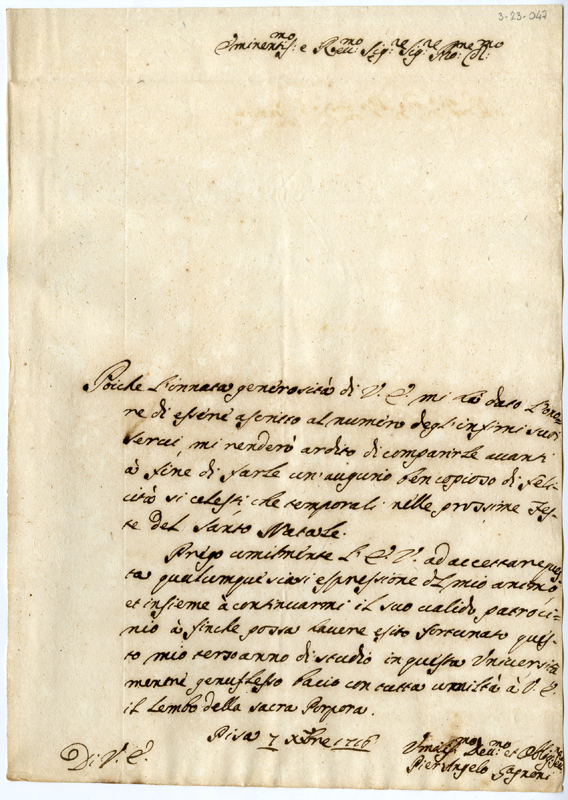 3-23-047
Eminentis:mo e Rev:mo Sig:re Sig:re Pro:ne Col:mo
Poiche l'innata generosità di V. E. mi hà dato l'ono=
re di essere ascritto al numero degli infimi suoi
servi, mi renderò ardito di comparirle avanti
à fine di farle un'augurio ben copioso di feli
cità si celesti, che temporali nelle prossime Fes-
te del Santo Natale.
Prego umilmente l'E. V. ad accettare ques
ta qualunque siasi espressione del mio animo
et insieme à continuarmi il suo valido patroci=
nio à finche possa havere esito fortunato ques-
to mio terso anno di studio in questa Università
mentre genuflesso bacio con tutta umiltà à V. E.
il lembo della sacra Porpora.
Pisa 7 Xbre 1716
Di V. E.
Umilis:mo Dev:mo et Oblig:mo Ser:
Pier Angelo